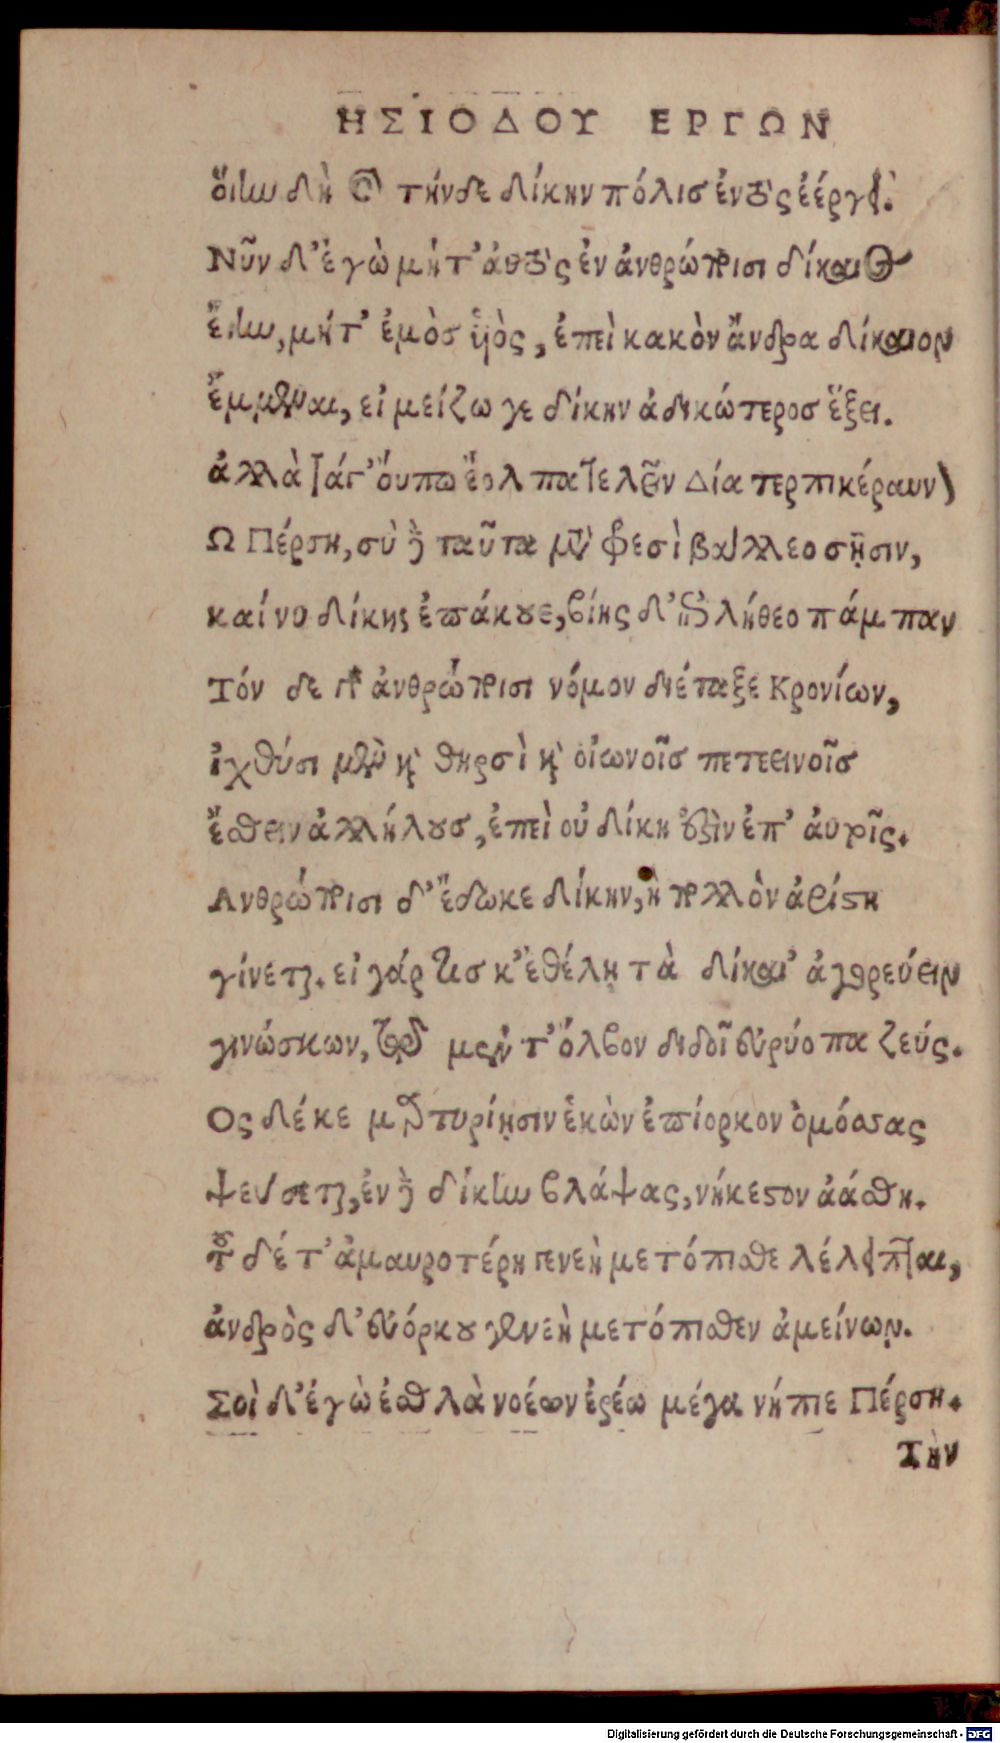 ΗΣΙΟΔΟΥ ΕΡΓΩΝ
ὅιην δὴ καὶ τήνδε δίκην πόλισ ἐντὸς ἐέργει.
Νῦν δ’ ἐγὼ μήτ’ ἀυτὸς ἐν ἀνθρώποισι δίκαιος
ἔιην, μήτ’ ἐμὸσ υἱὸς, ἐπεὶ κακὸν ἄνδρα δίκαιον
ἔμμεναι, εἰ μείζω γε δίκην ἀδικώτεροσ ἕξει.
ἀλλὰ τάγ’ ὄυπω ἔολπα τελεῖν Δία τερπικέραυνον
Ω Πέρση, σὺ δὲ ταῦτα μετὰ φρεσὶ βάλλεο σῇσιν,
καί νυ δίκης ἐπάκουε, βίης δ’ ἐπιλήθεο πάμπαν
Τόν δε γὰρ ἀνθρώποισι νόμον διέταξε Κρονίων,
ἰχθύσι μὲν καὶ θηρσὶ καὶ οἰωνοῖσ πετεεινοῖσ
ἔσθειν ἀλλήλουσ, ἐπεὶ οὐ δίκη ἐστὶν ἐπ’ ἀυτοῖς.
Ανθρώποισι δ’ ἔδωκε δίκην, ἣ πολλὸν ἀρίστη
γίνεται. εἰ γάρ τισ κ’ ἐθέλῃ τὰ δίκαι’ ἀγορεύειν
γινώσκων, τῷ μέν τ’ ὄλβον διδοῖ εὐρύοπα ζεύς.
Ος δέ κε μαρτυρίῃσιν ἑκὼν ἐπίορκον ὀμόσσας
ψεύσεται, ἐν δὲ δίκην βλάψας, νήκεστον ἀάσθη.
τοῦ δέ τ’ ἀμαυροτέρη γενεὴ μετόπισθε λέλειπται,
ἀνδρὸς δ’ εὐόρκου γενεὴ μετόπισθεν ἀμείνων.
Σοὶ δ’ ἐγὼ ἐσθλὰ νοέων ἐρέω μέγα νήπιε Πέρση.
Τὴν
Digitalisierung gefördert durch die Deutsche Forschungsgemeinschaft - DFG